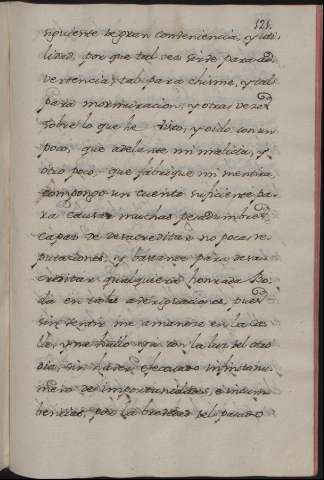 121.
siguiente de gran conveniencia, y uti-
lidad, por que tal vez sirve para ad-
vertencia, tal para chisme, y tal
para murmuracion, y otras vezes
sobre lo que he visto, y oido con un
poco, que adelante mi malicia, y
otro poco, que fabrique mi mentira
compongo un cuento suficiente pa-
ra causar muchas pesadumbres,
capaz de desacreditar no pocas re-
putaciones, y bastante para desa-
creditar qualquiera honrada
en tales aberiguaciones, pues
sin sentir me amanece en la ca-
lle, y me hallo con la luz del otro
dia, sin haver efectuado infinito nu-
mero de importunidades, e incum-
bencias, por la brevedad del pasado